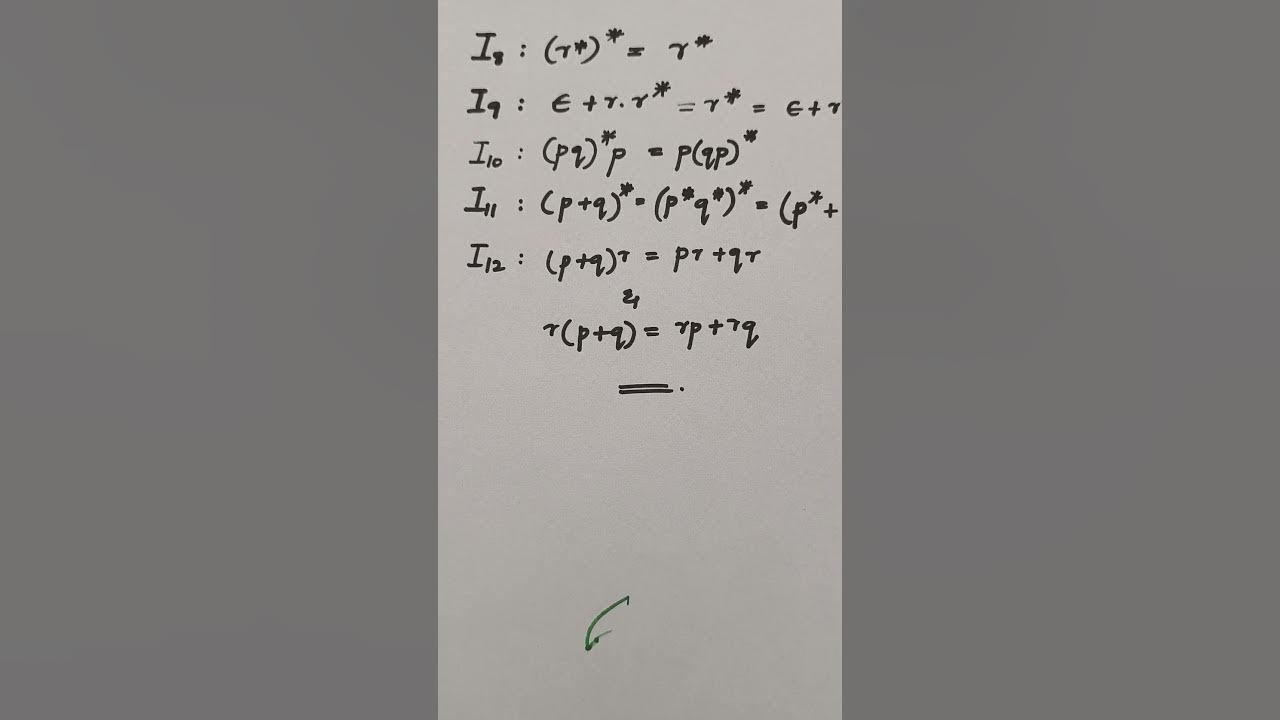 I₈ : (r*)* = r*
I₉ : ϵ + r.r* = r* = ϵ + r
I₁₀ : (pq)*p = p(qp)*
I₁₁ : (p+q)* = (p*q*)* = (p*+
I₁₂ : (p+q)r = pr + qr
&
r(p+q) = rp + rq